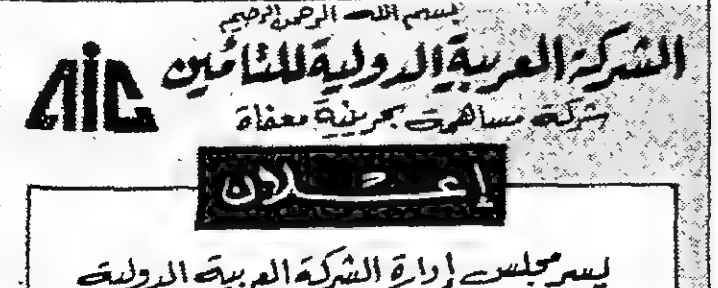 بسم الله الرحمن الرحيم
الشركة العربية الدولية للتأمين
AIC
شركة مساهمة بحرينية معفاة
إعلان
يسر مجلس إدارة الشركة العربية الدولية